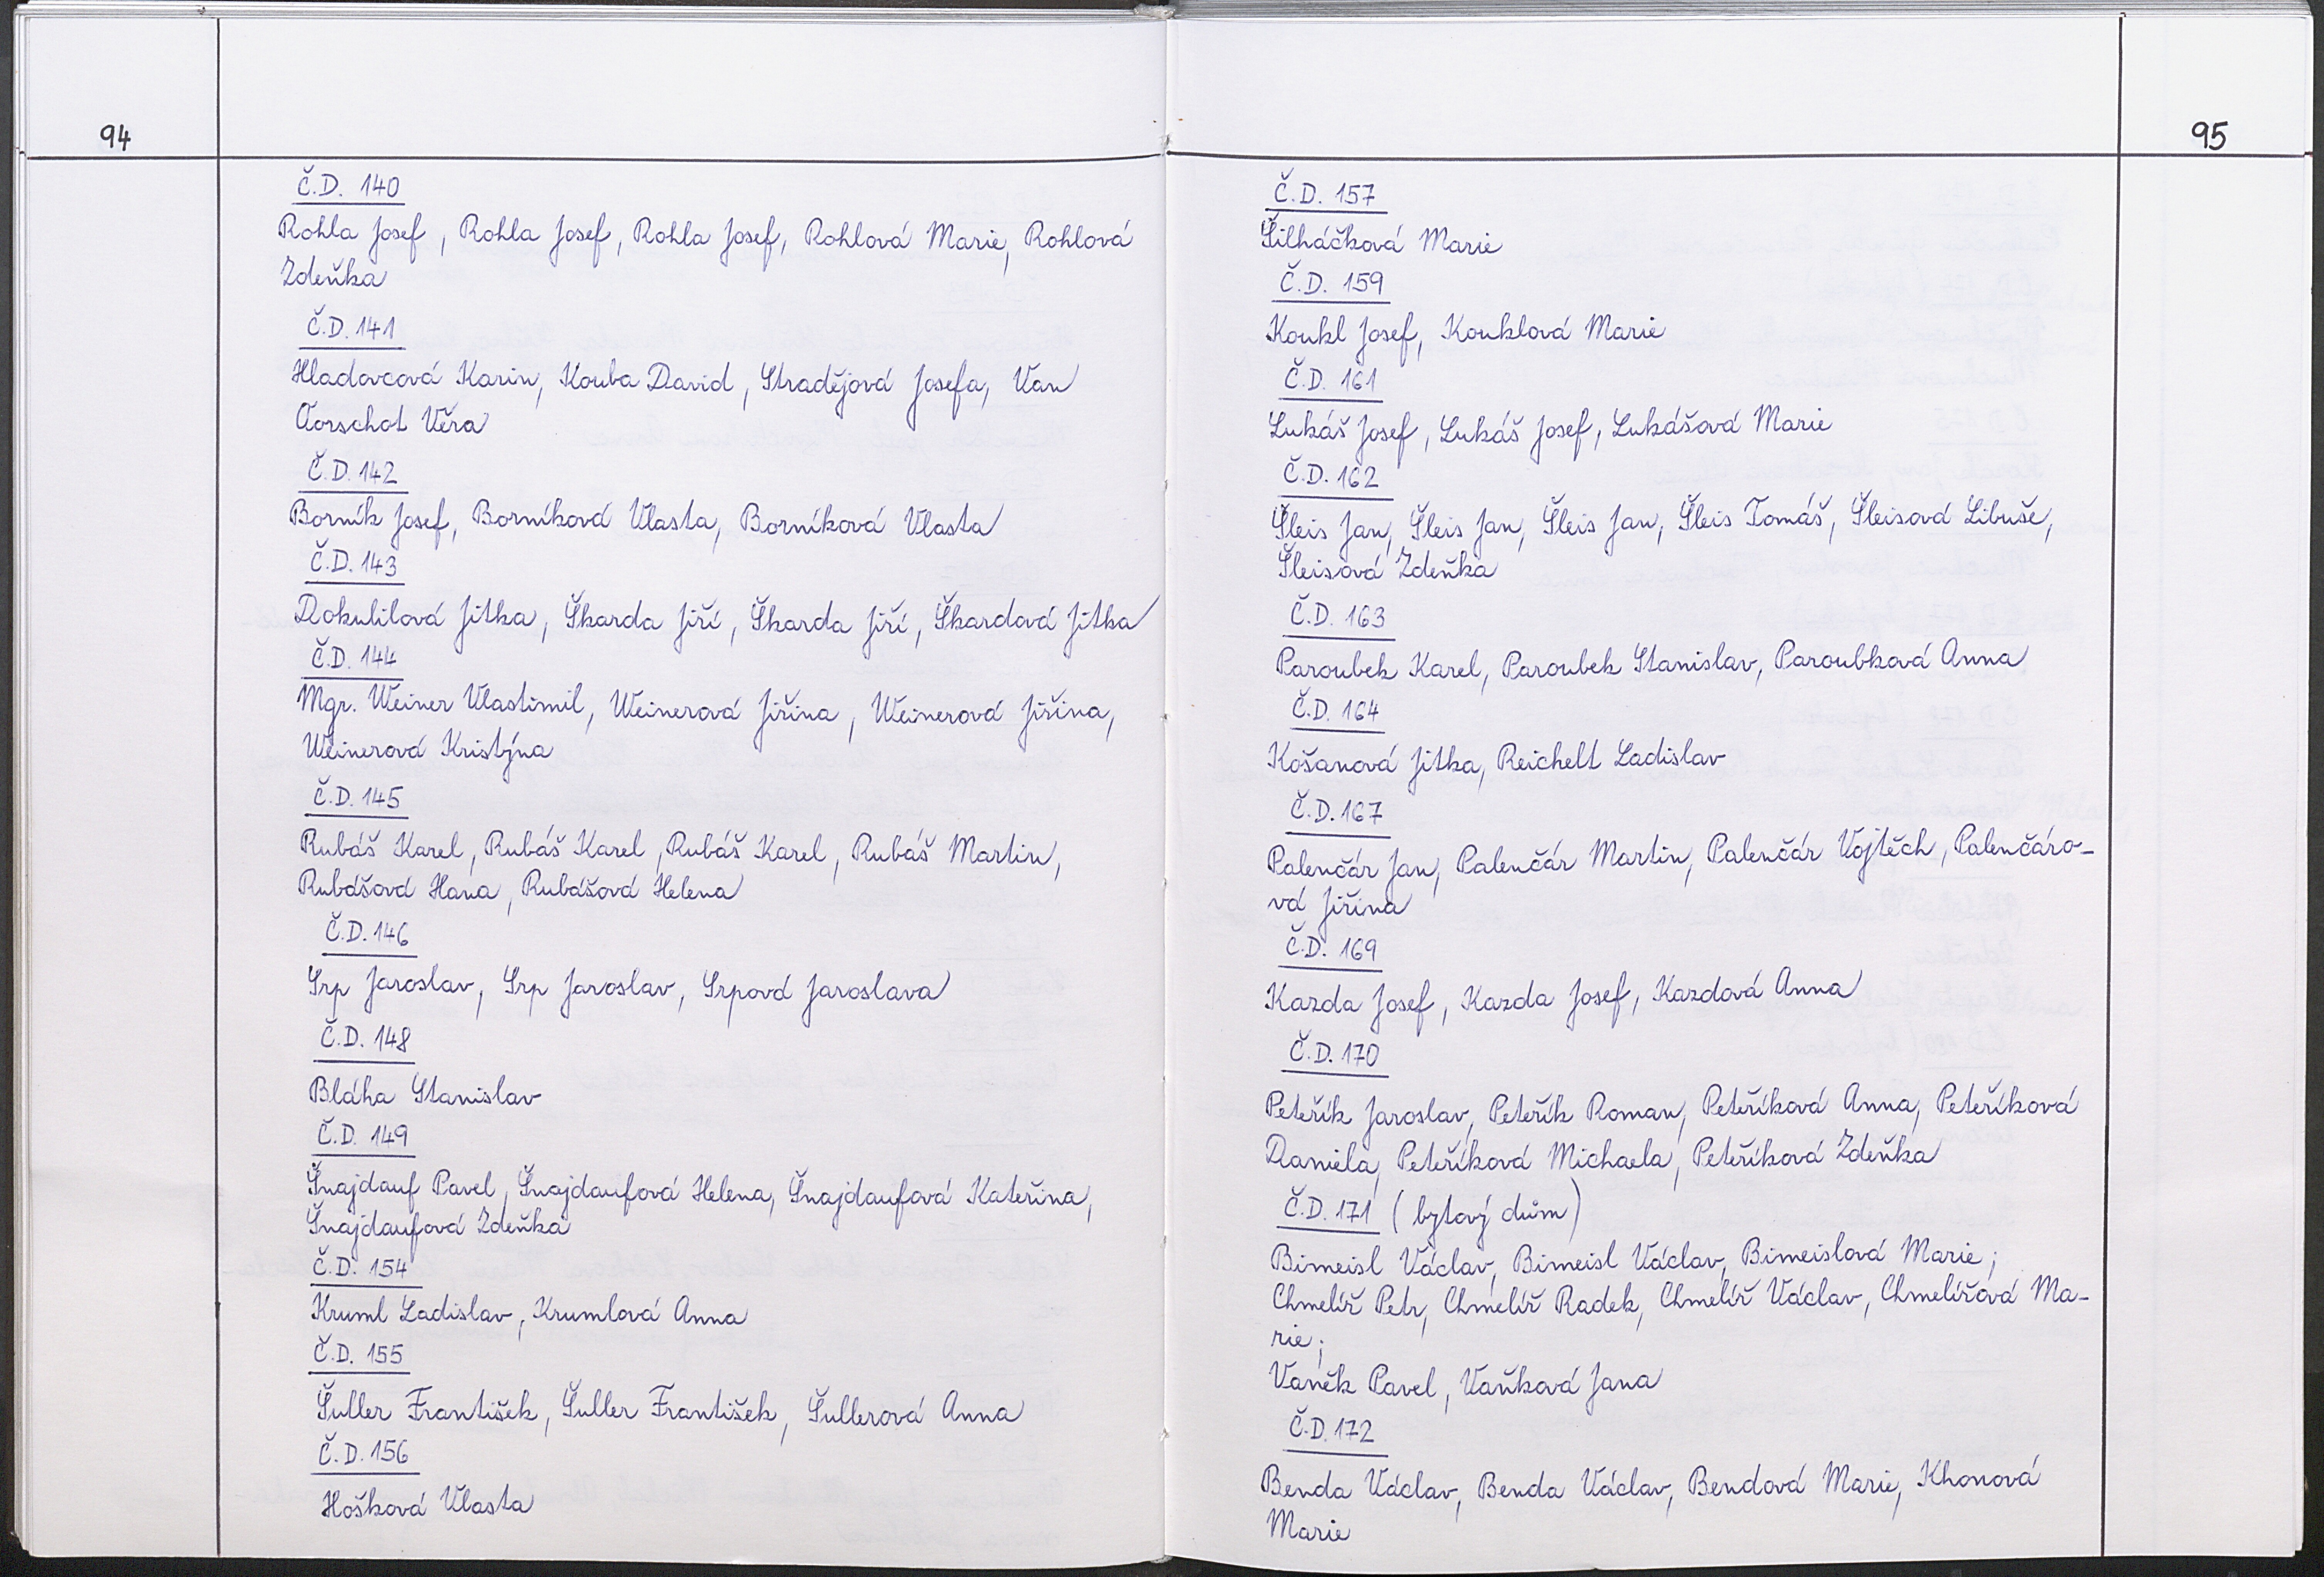 94
Č.D. 140
Rohla Josef, Rohla Josef, Rohla Josef, Rohlová Marie, Rohlová
Zdeňka
Č.D. 141
Hladovcová Karin, Kouba David, Stradějová Josefa, Van
Oorschot Věra
Č.D. 142
Borník Josef, Borníková Vlasta, Borníková Vlasta
Č.D. 143
Dokulilová Jitka, Škarda Jiří, Škarda Jiří, Škardová Jitka
Č.D. 144
Mgr. Weiner Vlastimil, Weinerová Jiřina, Weinerová Jiřina,
Weinerová Kristýna
Č.D. 145
Rubáš Karel, Rubáš Karel, Rubáš Karel, Rubáš Martin,
Rubášová Hana, Rubášová Helena
Č.D. 146
Srp Jaroslav, Srp Jaroslav, Srpová Jaroslava
Č.D. 148
Bláha Stanislav
Č.D. 149
Šnajdauf Pavel, Šnajdaufová Helena, Šnajdaufová Kateřina,
Šnajdaufová Zdeňka
Č.D. 154
Kruml Ladislav, Krumlová Anna
Č.D. 155
Šuller František, Šuller František, Šullerová Anna
Č.D. 156
Hošková Vlasta
95
Č.D. 157
Šilháčková Marie
Č.D. 159
Koukl Josef, Kouklová Marie
Č.D. 161
Lukáš Josef, Lukáš Josef, Lukášová Marie
Č.D. 162
Šleis Jan, Šleis Jan, Šleis Jan, Šleis Tomáš, Šleisová Libuše,
Šleisová Zdeňka
Č.D. 163
Paroubek Karel, Paroubek Stanislav, Paroubková Anna
Č.D. 164
Košanová Jitka, Reichelt Ladislav
Č.D. 167
Palenčár Jan, Palenčár Martin, Palenčár Vojtěch, Palenčáro-
vá Jiřina
Č.D. 169
Kazda Josef, Kazda Josef, Kazdová Anna
Č.D. 170
Peteřík Jaroslav, Peteřík Roman, Peteříková Anna, Peteříková
Daniela, Peteříková Michaela, Peteříková Zdeňka
Č.D. 171 (bytový dům)
Bimeisl Václav, Bimeisl Václav, Bimeislová Marie;
Chmelíř Petr, Chmelíř Radek, Chmelíř Václav, Chmelířová Ma-
rie;
Vaněk Pavel, Vaňková Jana
Č.D. 172
Benda Václav, Benda Václav, Bendová Marie, Khonová
Marie